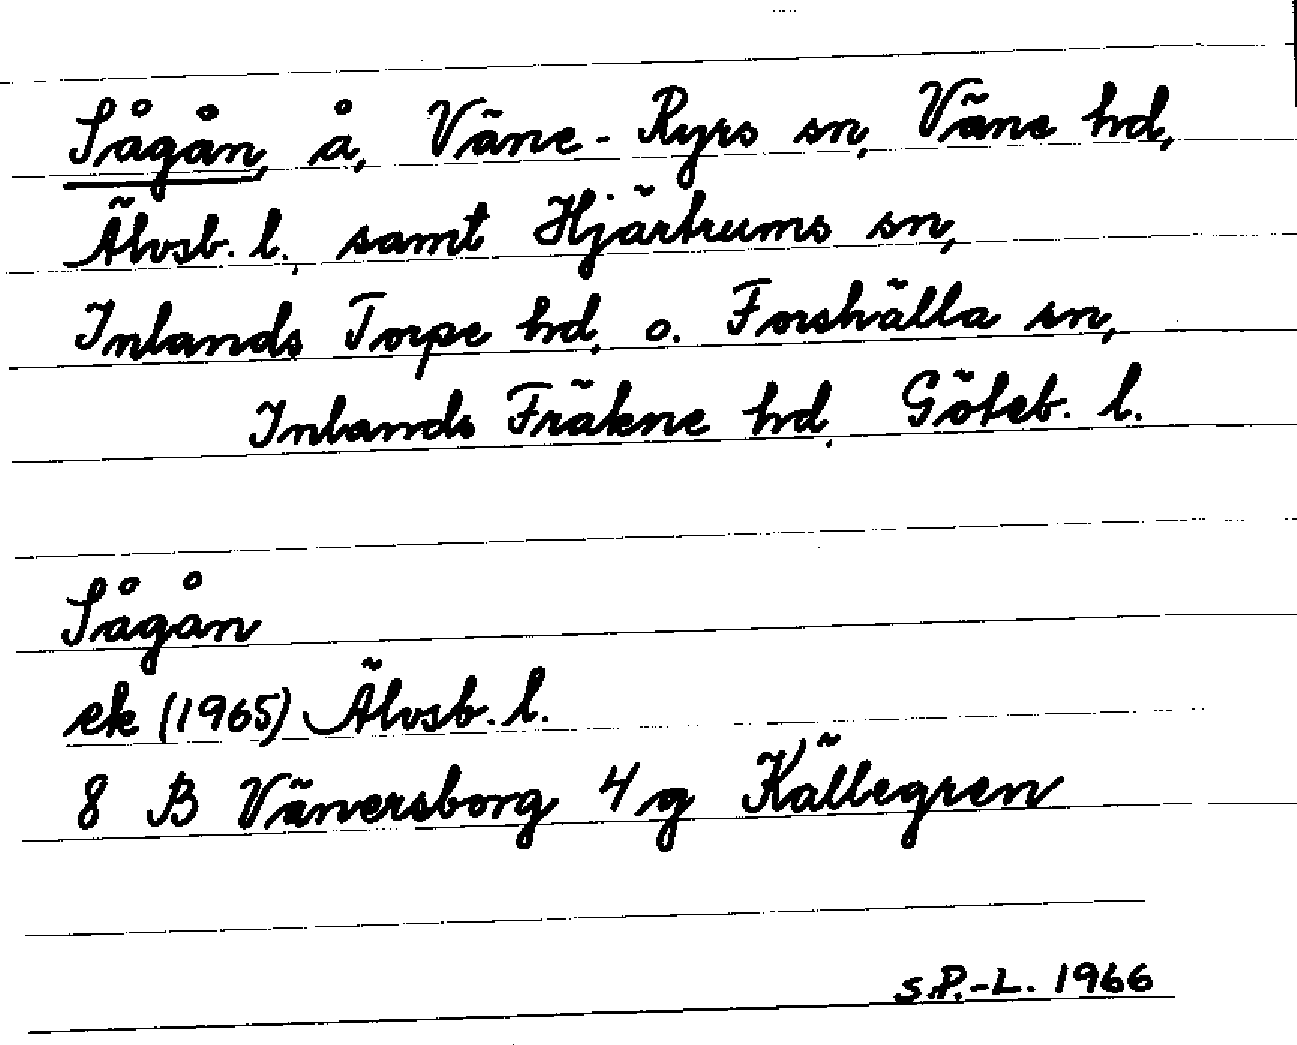 Sågån, å, Väne-Ryrs sn, Väne hd,
Älvsb. l., samt Hjärtrums sn,
Inlands Torpe hd, o. Forshälla sn,
Inlands Fräkne hd, Göteb. l.
Sågån
ek (1965) Älvsb. l.
8 B Vänersborg 4g Källegren
S.P.-L. 1966